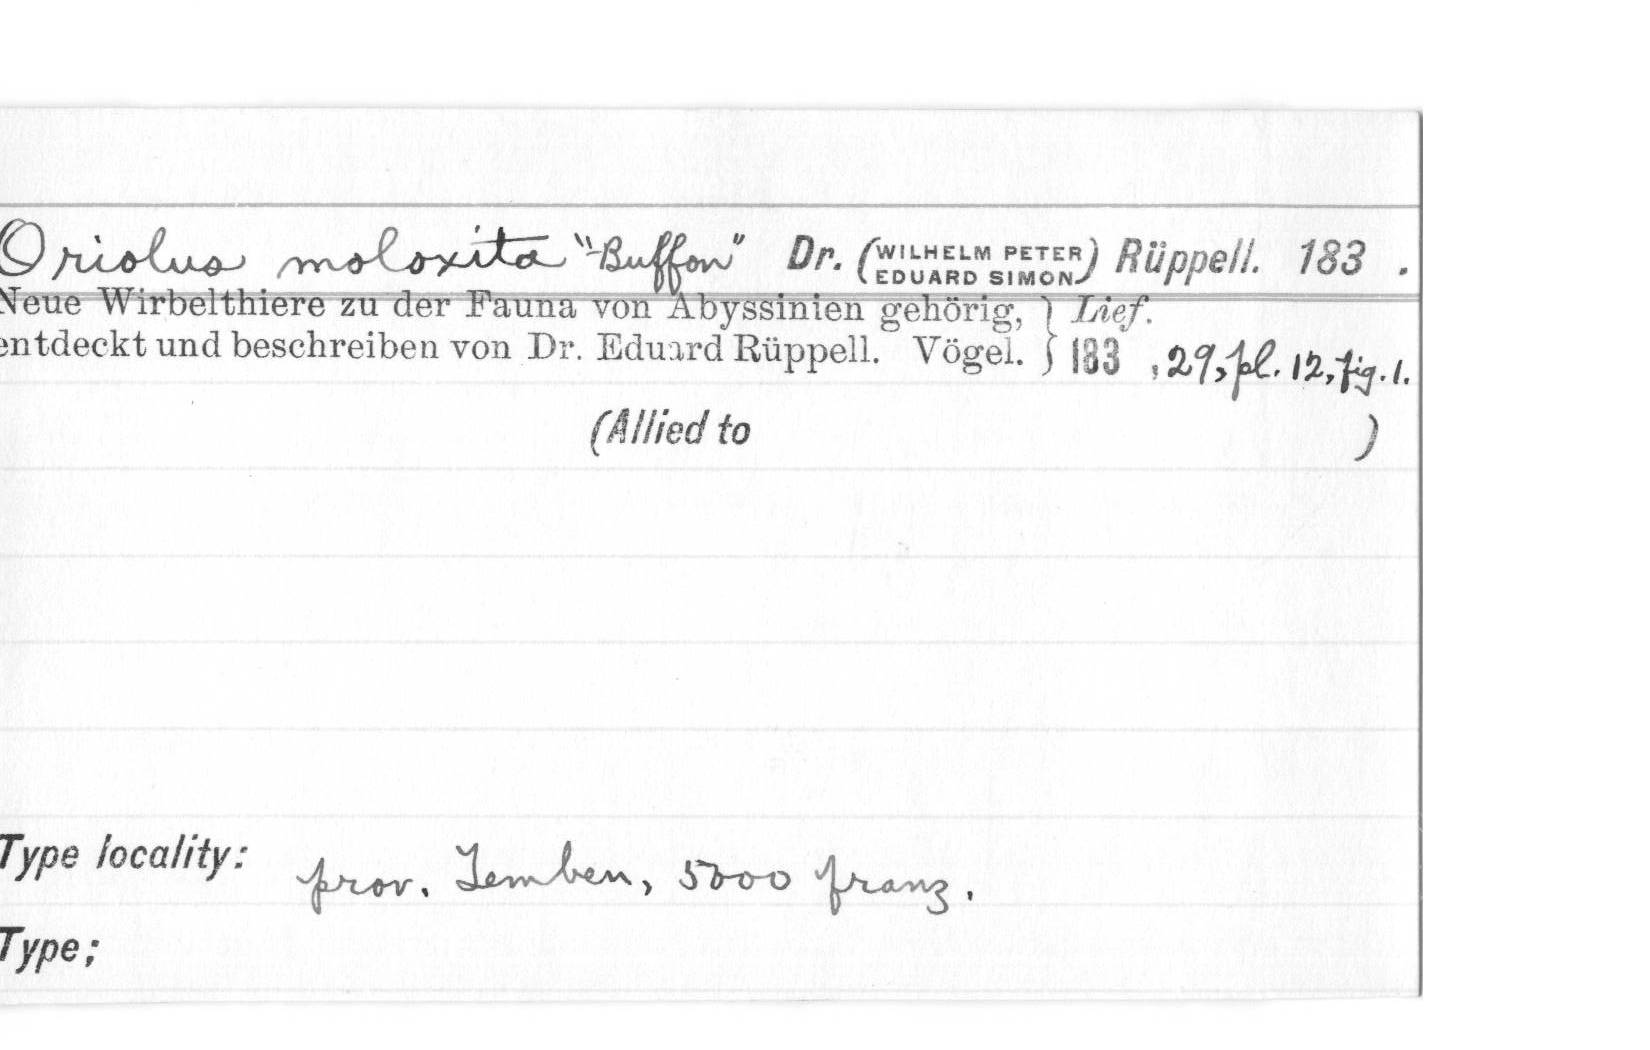 Oriolus moloxita "Buffon" Dr. (WILHELM PETER EDUARD SIMON) Rüppell. 183 .
Neue Wirbelthiere zu der Fauna von Abyssinien gehörig, } Lief.
entdeckt und beschreiben von Dr. Eduard Rüppell. Vögel. } 183 , 29, pl. 12, fig. 1.
(Allied to )
Type locality: prov. Temben, 5000 franz.
Type;